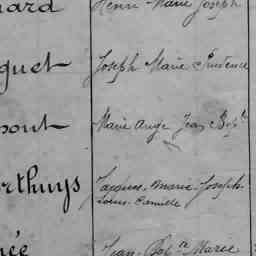 nard Henri Marie Joseph
guet Joseph Marie Prudence
pont Marie Ange Jean Bapt
rthuys Jacques-Marie-Joseph-
Louis-Camille
née Jean-Bapte Marie